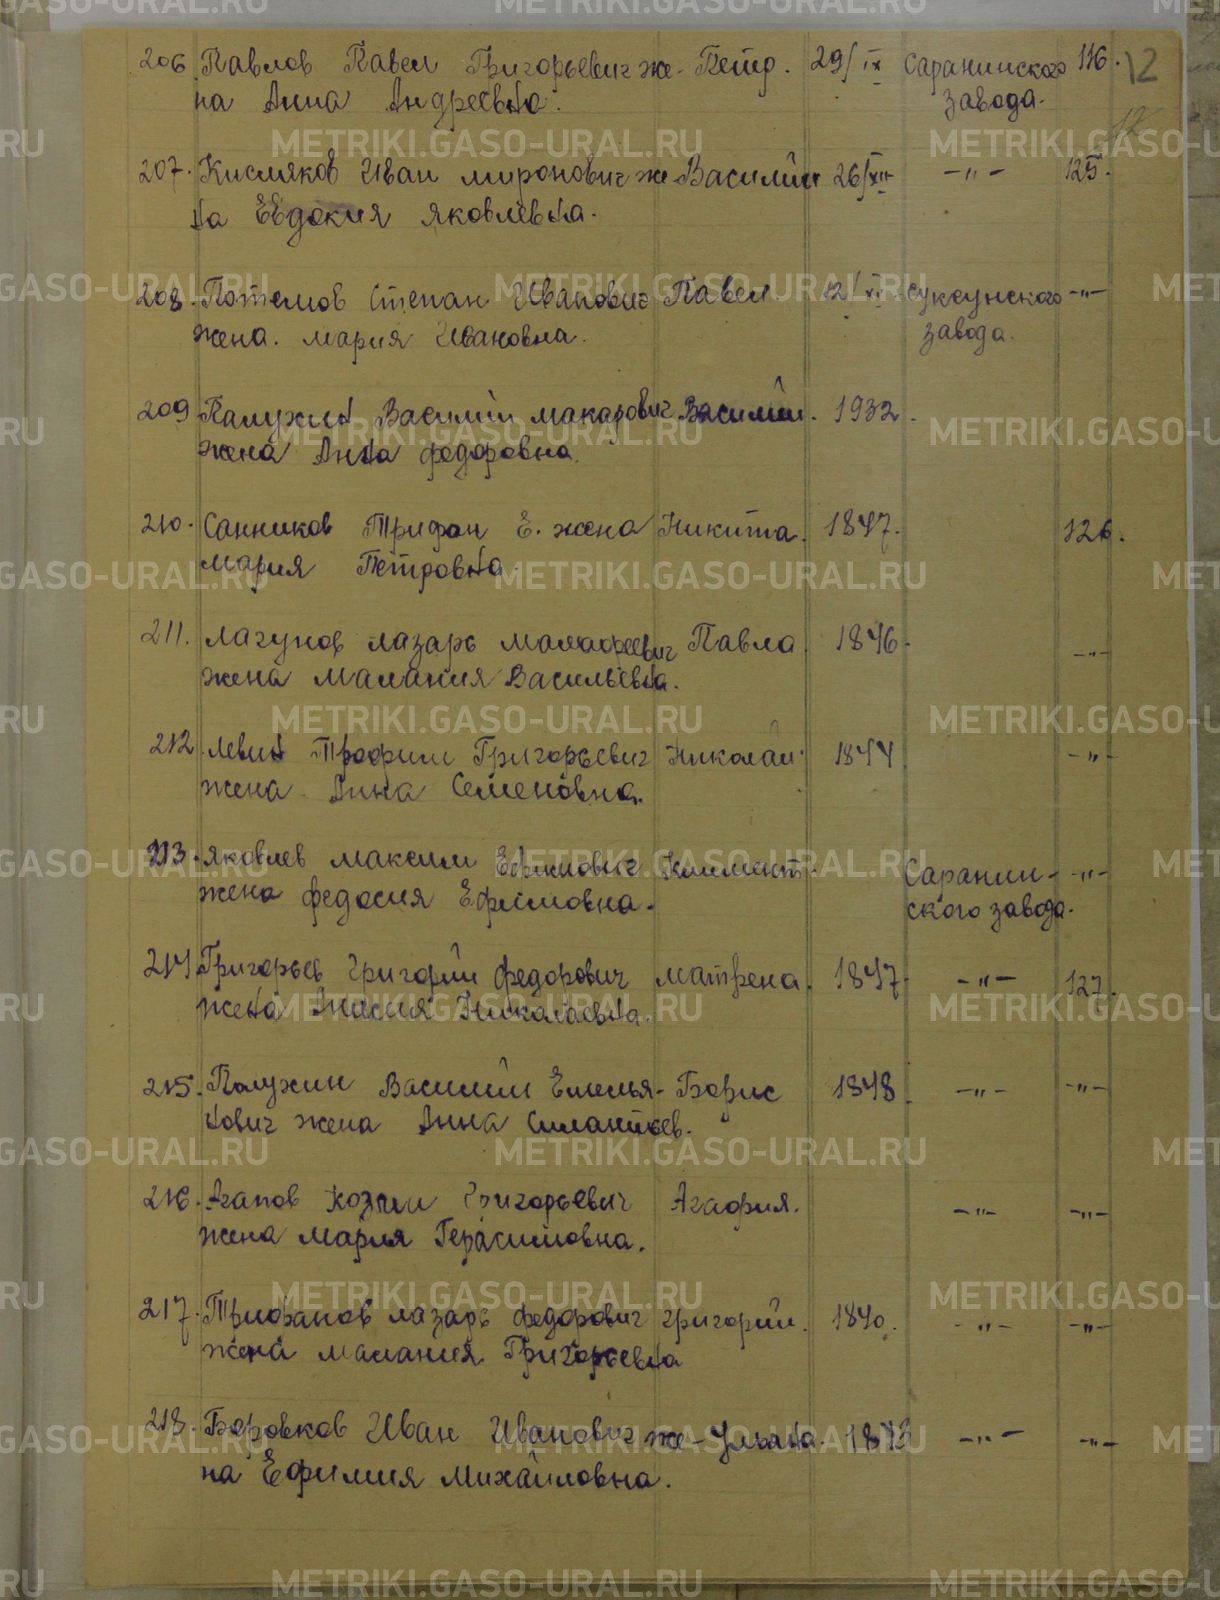 206 Павлов Павел Григорьевич же- Петр. 29/IX Саранинского 116. 12
на Анна Андреевна. завода.
207. Кисляков Иван Миронович же- Василий 26/XII -"- 125.
на Евдокия Яковлевна.
208. Потемов Степан Иванович Павел. 12/XI Суксунского -"-
жена. Мария Ивановна. завода.
209 Палухин Василий Макарович Василий. 1932.
жена Анна Федоровна.
210. Санников Трифон Е. жена Никита. 1847. 126.
Мария Петровна.
211. Лагунов Лазарь Малафеевич Павла. 1846. -"-
жена Малания Васильевна.
212. Левин Трофим Григорьевич Николай. 1844 -"-
жена Анна Семеновна.
213. Яковлев Максим Ефимович Климент. Саранин- -"-
жена Федосия Ефимовна. ского завода.
214. Григорьев Григорий Федорович Матрена. 1847. -"- 127.
жена Анисия Николаевна.
215. Палухин Василий Емелья- Борис 1848. -"- -"-
нович жена Анна
216. Агапов Козми Григорьевич Агафия. -"- -"-
жена Мария Герасимовна.
217. Трифанов Лазарь Федорович Григорий. 1840. -"- -"-
жена Малания Григорьевна
218. Боровков Иван Иванович же- Ульяна. 1843 -"- -"-
на Ефимия Михайловна.
METRIKI.GASO-URAL.RU